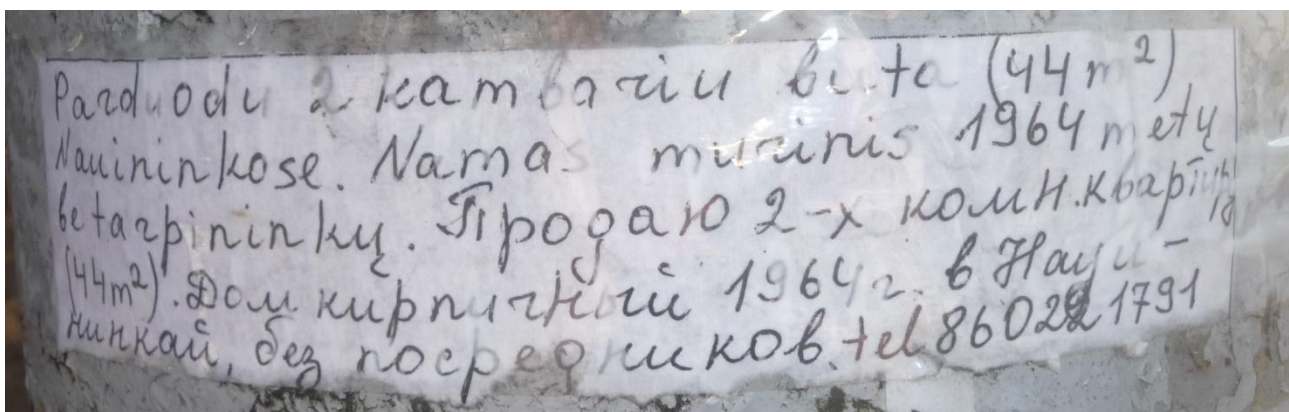 Parduodu 2 kambariu buta (44 m²)
Naujininkose. Namas murinis 1964 metų
betarpininkų. Продаю 2-х комн. квартиру
(44m²). Дом кирпичный 1964 г. в Науи-
нинкай, без посредников. tel 860221791